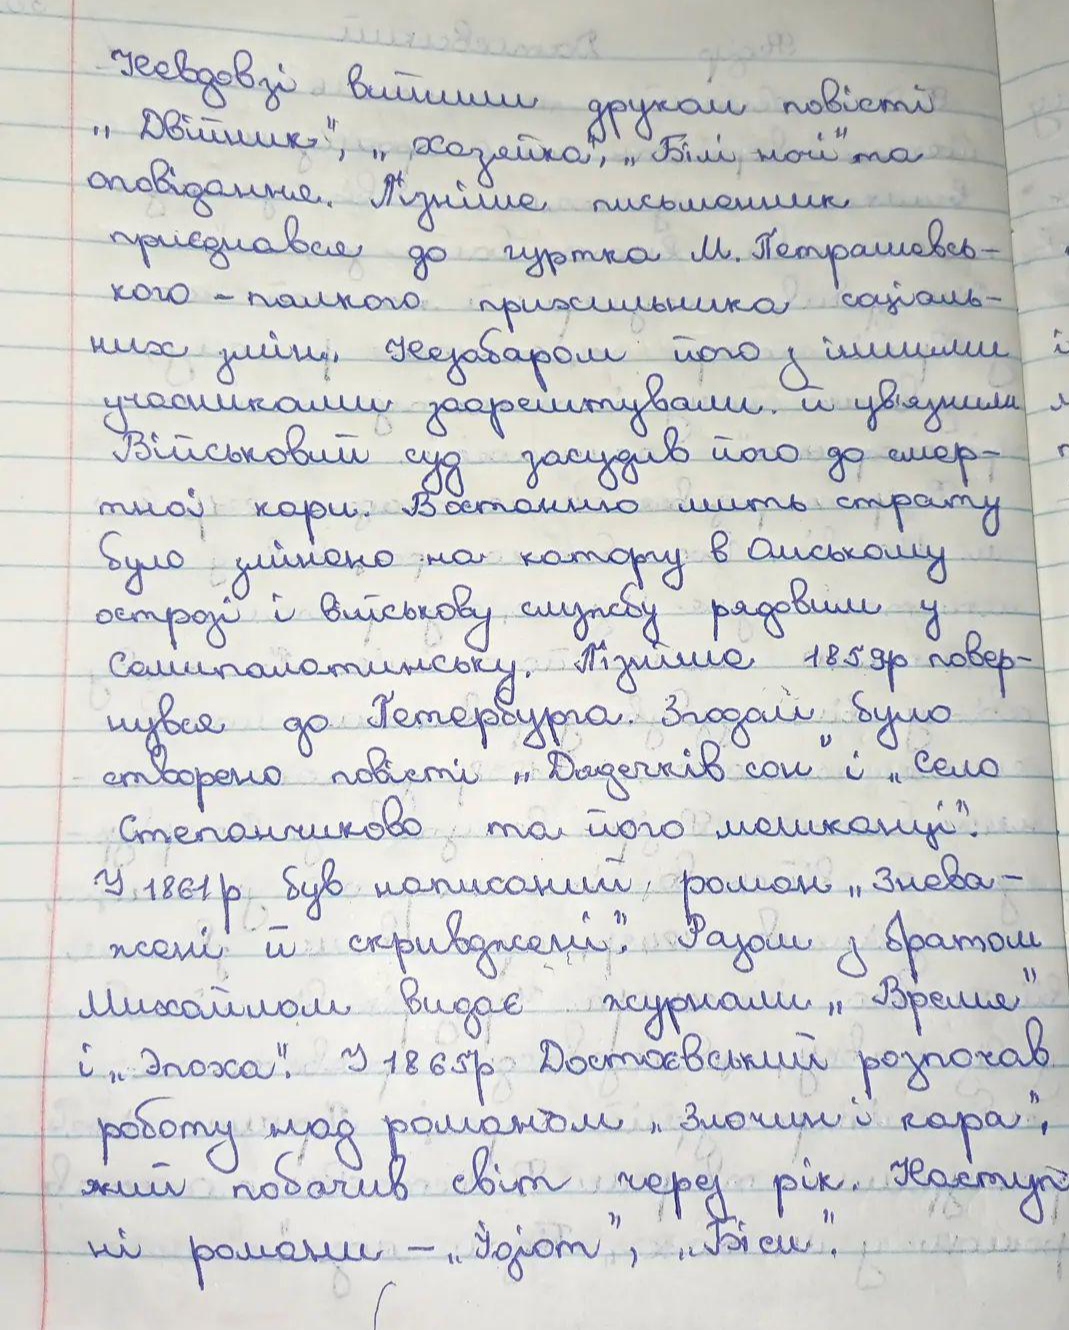 Невдовзі вийшли друком повісті
„Двійник", „Хазяйка", „Білі ночі" та
оповідання. Пізніше письменник
приєднався до гуртка М. Петрашевсь-
кого – палкого прихильника соціаль-
них змін. Незабаром його з іншими
учасниками заарештували й ув'язнили
Військовий суд засудив його до смер-
тної кари. В останню мить страту
було змінено на каторгу в Омському
острозі і військову службу рядовим у
Семипалатинську. Пізніше 1859р повер-
нувся до Петербурга. Згодом було
створено повісті „Дядечків сон" і „Село
Степанчиково та його мешканці".
У 1861р був написаний роман „Знева-
жені й скривджені". Разом з братом
Михайлом видає журнали „Время"
і „Эпоха". У 1865р Достоєвський розпочав
роботу над романом „Злочин і кара",
який побачив світ через рік. Наступ
ні романи – „Ідіот", „Біси".